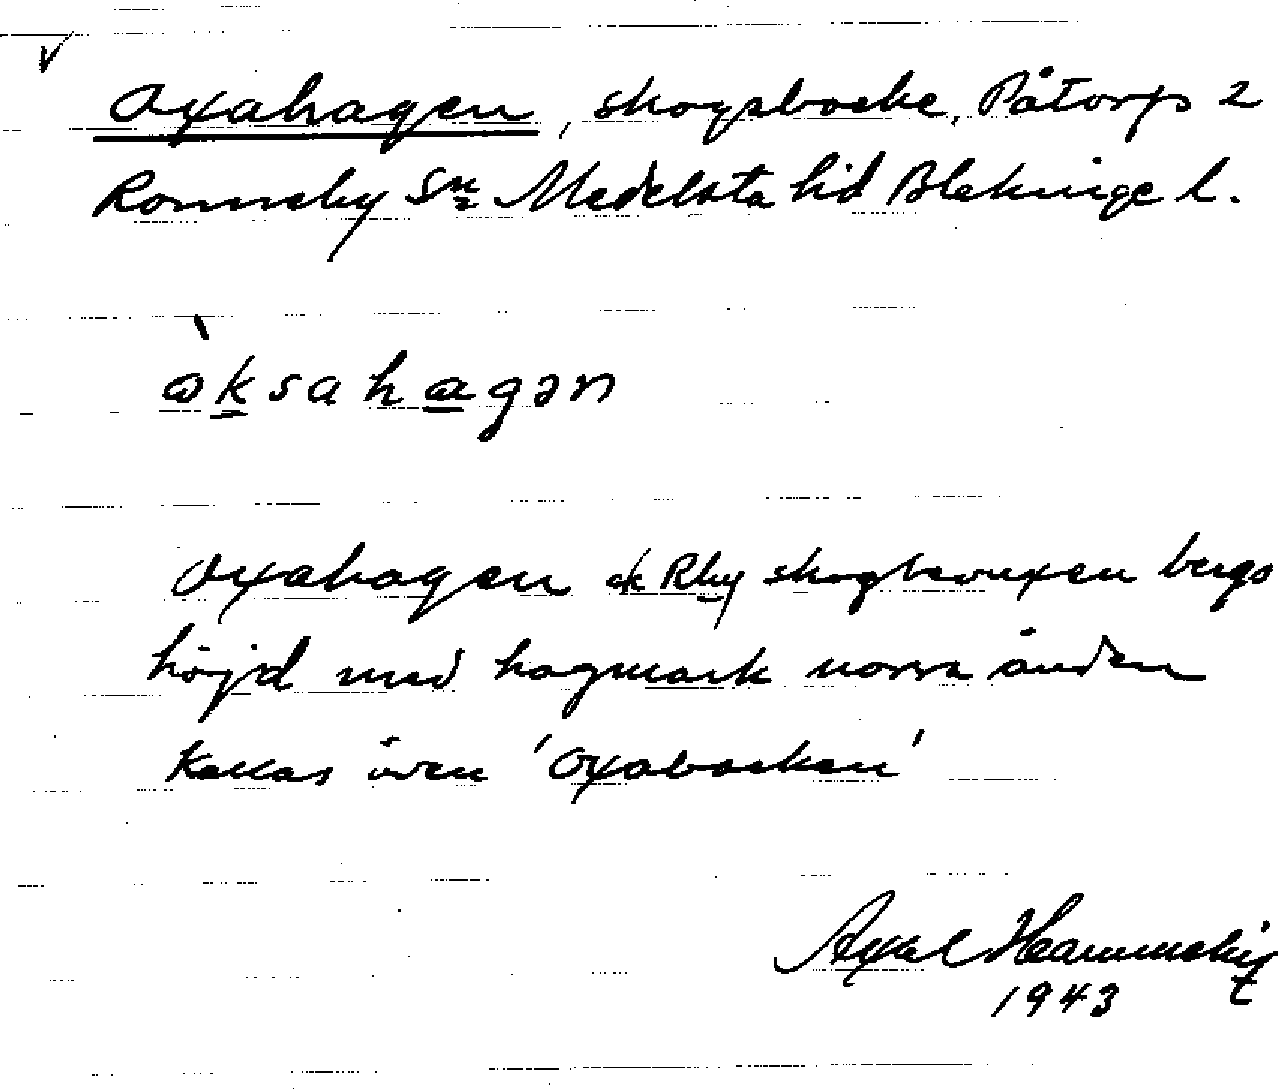 Oxahagen, skogsbacke, Påtorp 2
Ronneby Sn Medelsta hd Blekinge l.
òksahagən
Oxahagen Rby skogbevuxen bergs
höjd med hagmark norra änden
Kallas även 'Oxabacken'
Axel
1943